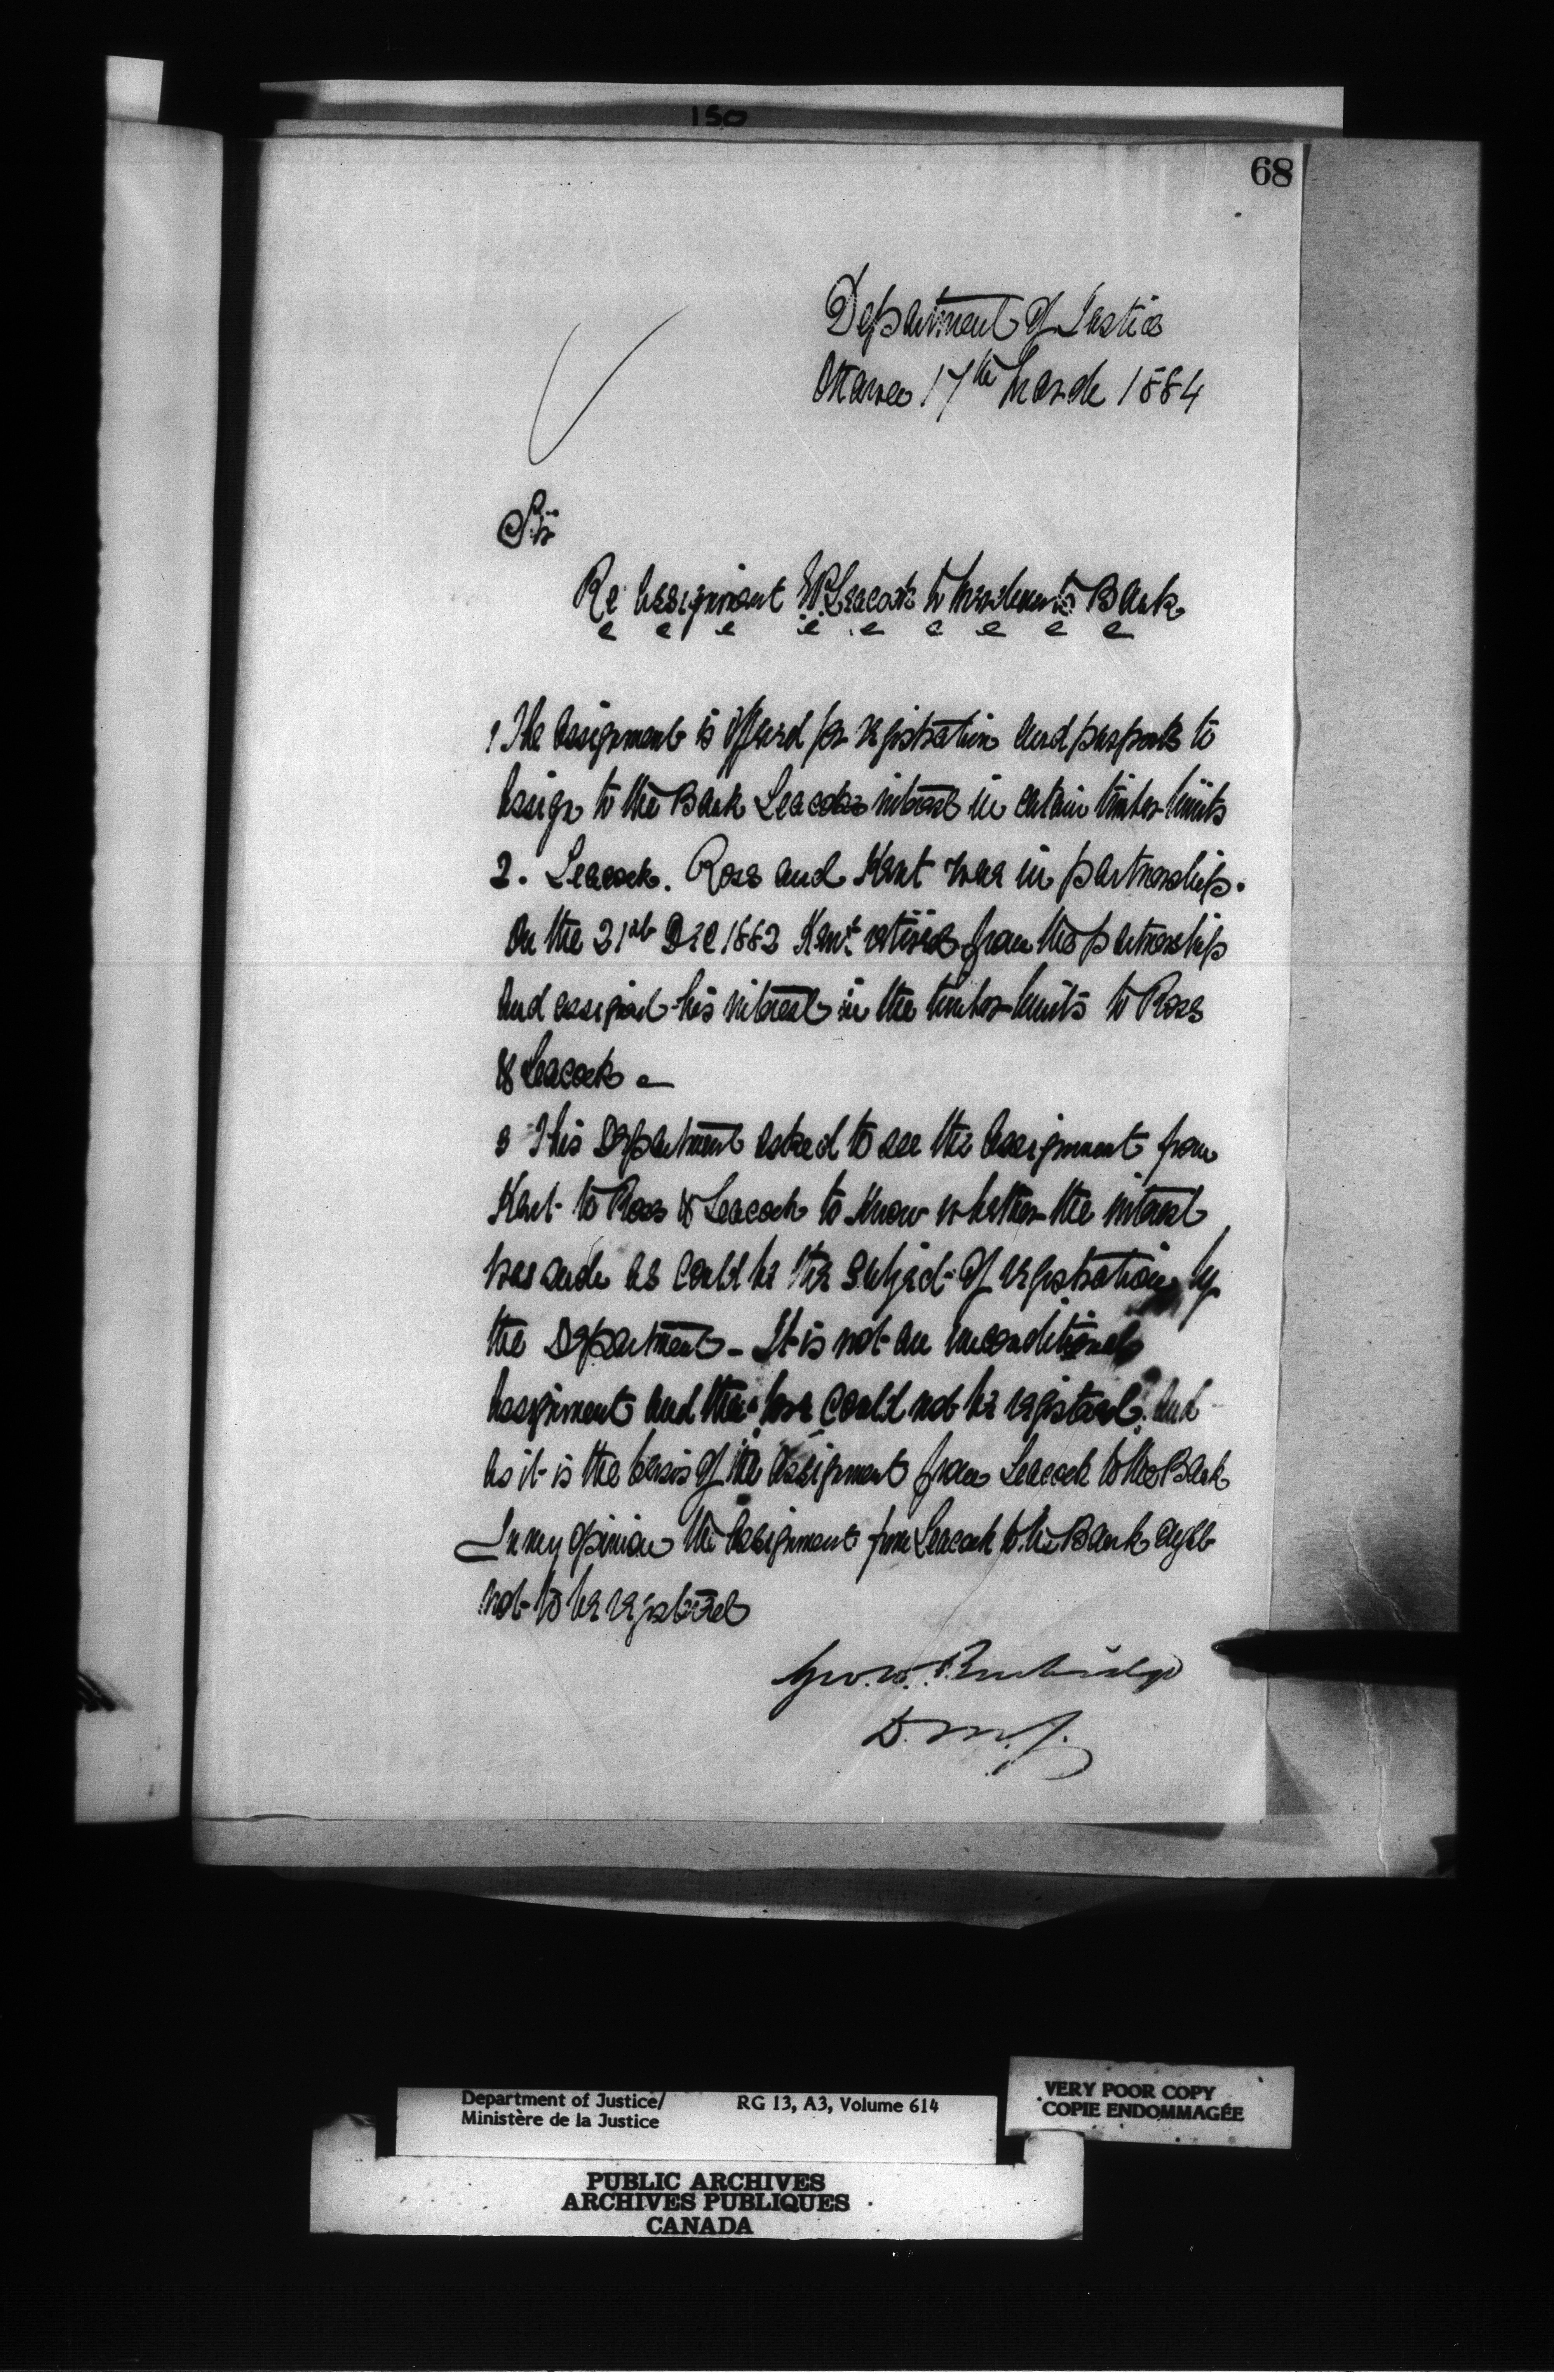 150
68
Department of Justice
Ottawa 17th March 1884
Sir
Re Assignment E P Leacock to Merchants Bank
1 The assignment is offered for registration and purports to
assign to the Bank Leacocks interest in certain timber limits
2. Leacock. Ross and Kent were in partnership.
On the 21st Dec 1882 Kent retired from the partnership
and assigned his interest in the timber limits to Ross
& Leacock
3 This Department asked to see the assignment from
Kent to Ross & Leacock to know whether the interest
was such as could be the subject of registration by
the Department - It is not an unconditional
assignment and therefore could not be registered. and
as it is the basis of the assignment from Leacock to the Bank
In my opinion the assignment from Leacock to the Bank ought
not to be registered
Geo. W. Burbidge
D. M. J.
Department of Justice/ RG 13, A3, Volume 614
Ministère de la Justice
VERY POOR COPY
COPIE ENDOMMAGÉE
PUBLIC ARCHIVES
ARCHIVES PUBLIQUES
CANADA